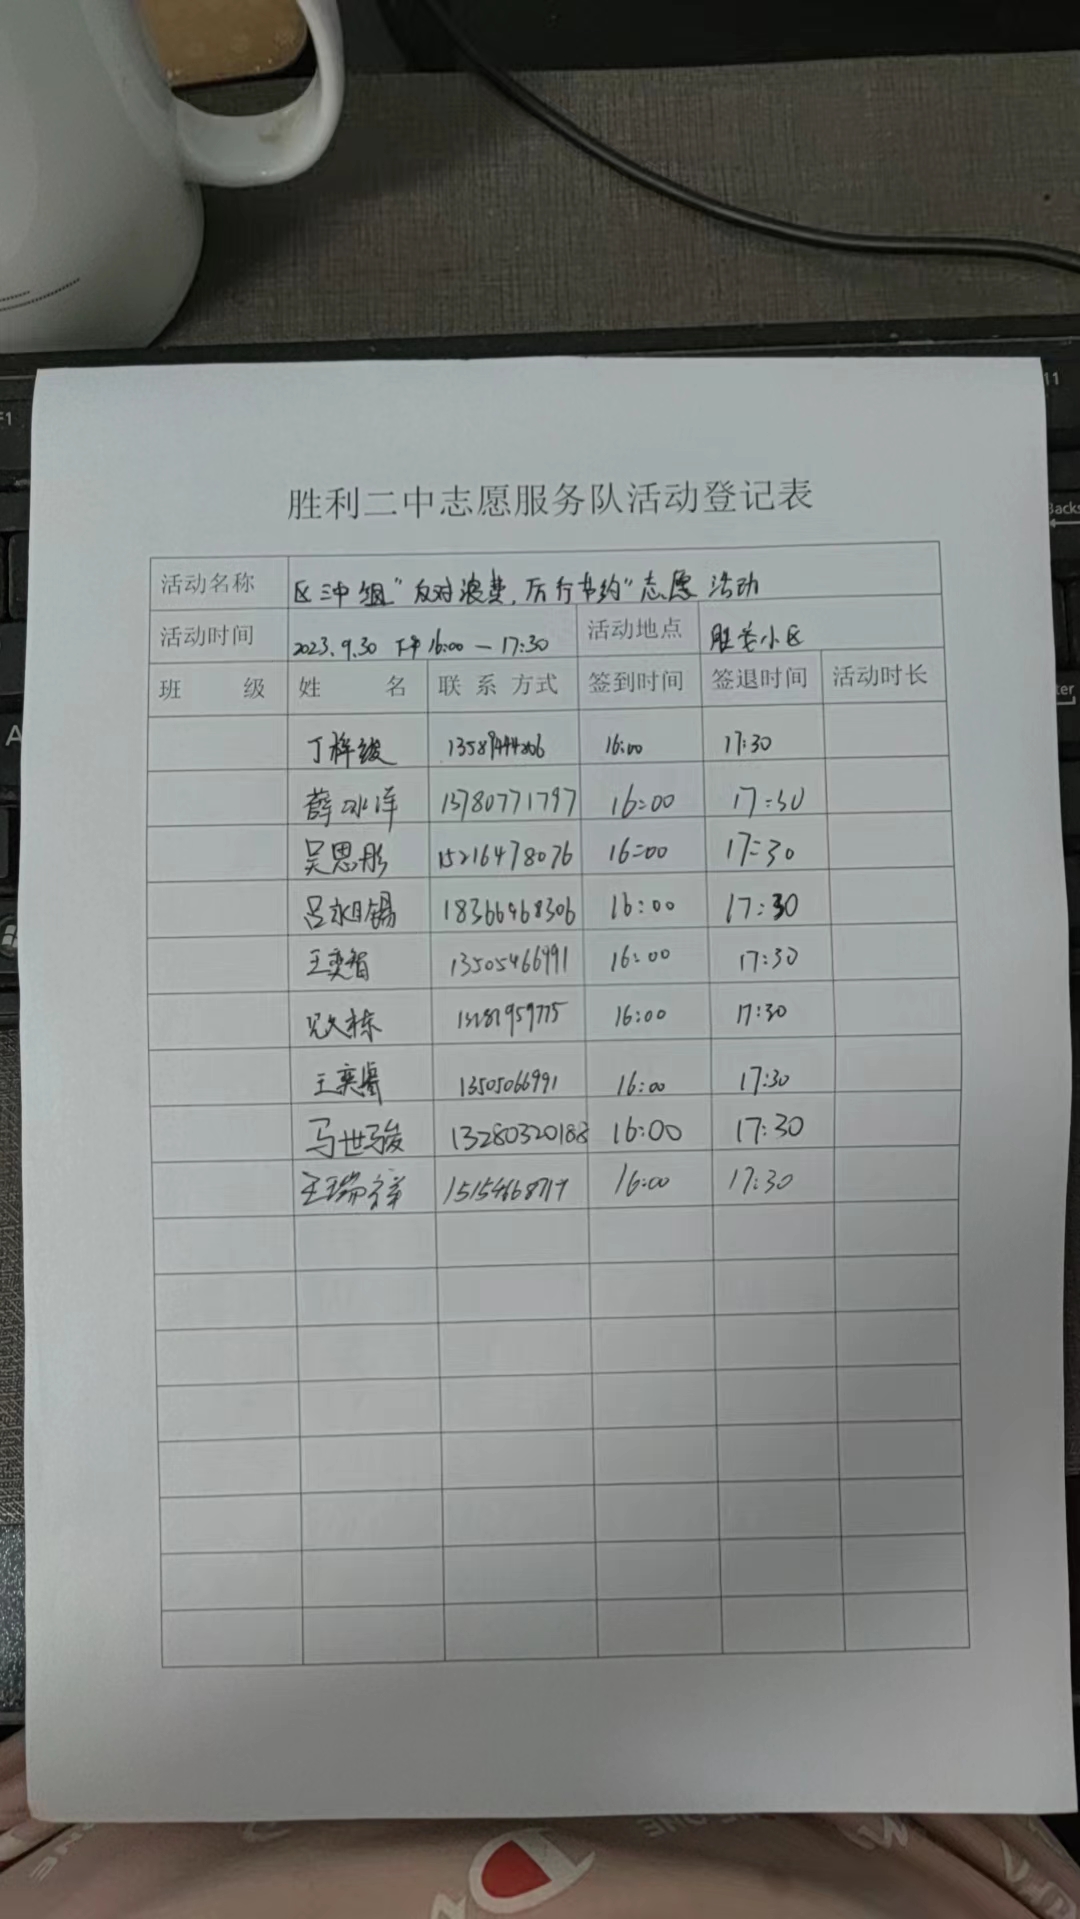 胜利二中志愿服务队活动登记表
活动名称 区三中组"反对浪费,厉行节约"志愿活动
活动时间 2023.9.30 下午16:00—17:30 活动地点 胜苑小区
班级 姓名 联系方式 签到时间 签退时间 活动时长
丁梓绫 16:00 17:30
薛冰洋 13780771797 16:00 17:30
吴思彤 15216478076 16:00 17:30
吕 锡 18366468306 16:00 17:30
王奕智 13505466991 16:00 17:30
16:00 17:30
王奕 13505066991 16:00 17:30
马世骏 13280320188 16:00 17:30
王瑞祥 16:00 17:30
F1
11
Backs